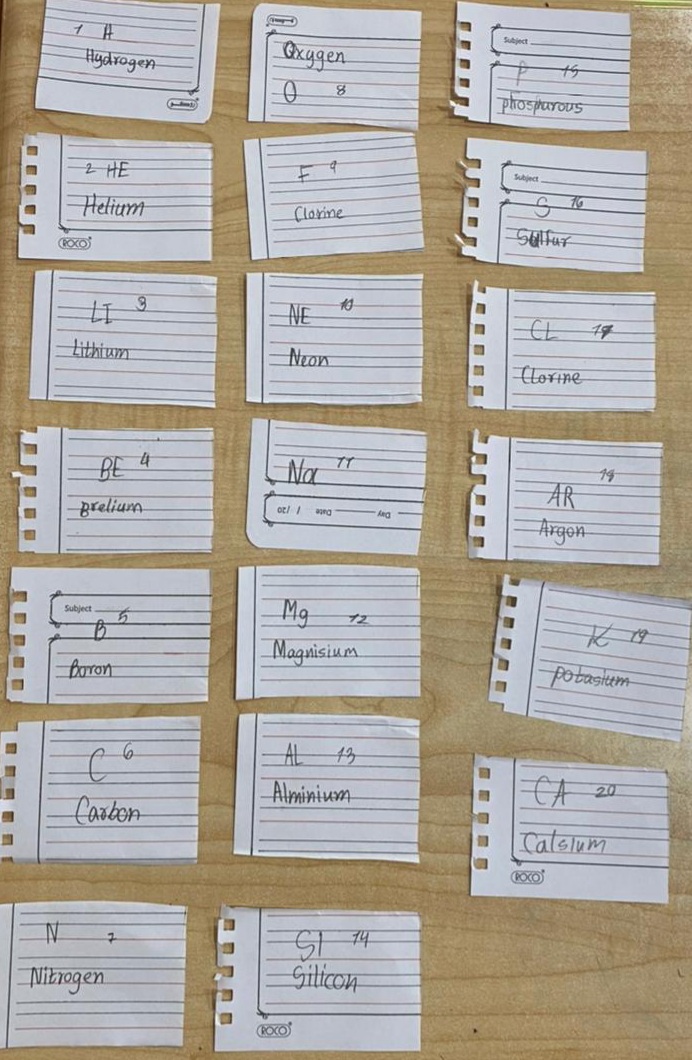 1 H
Hydrogen
2 HE
Helium
ROCO
LI 3
Lithium
BE 4
Brelium
Subject
B 5
Boron
C 6
Carbon
N 7
Nitrogen
Oxygen
O 8
F 9
Clorine
NE 10
Neon
Na 11
Day Date / /20
Mg 12
Magnisium
AL 13
Alminium
SI 14
Silicon
ROCO
Subject
P 15
phosphurous
Subject
S 16
Sulfur
CL 17
Clorine
AR 18
Argon
K 19
potasium
CA 20
Calsium
ROCO